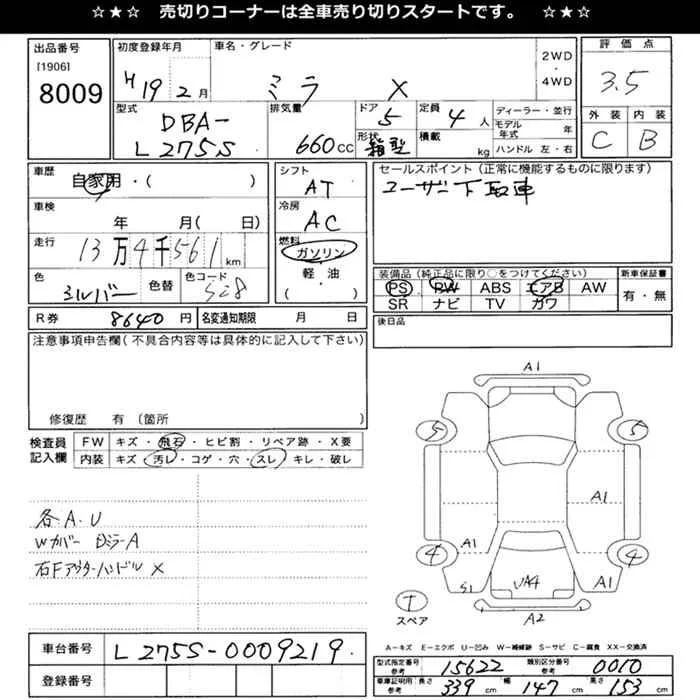 ☆★☆ 売切りコーナーは全車売り切りスタートです。 ☆★☆
出品番号
[1906]
8009
初度登録年月
H19年2月
車名・グレード
ミラ X
2WD
・
4WD
評価点
3.5
外装 内装
C B
型式
DBA-
L275S
排気量
660cc
ドア
5
形状
箱型
定員
4人
積載
kg
ディーラー・並行
モデル年式 年
ハンドル 左・右
車歴
自家用・( )
車検
年 月(日)
走行
13万4千561km
色
シルバー
色替
色コード
S28
シフト
AT
冷房
AC
燃料
ガソリン
軽・油
( )
セールスポイント(正常に機能するものに限ります)
ユーザー下取車
装備品(純正品に限り○をつけてください)
PS PW ABS エアB AW
SR ナビ TV カワ
新車保証書
有・無
R券 8640円
名変通知期限 月 日
後日品
注意事項申告欄(不具合内容等は具体的に記入して下さい)
修復歴 有(箇所
検査員
記入欄
FW キズ・飛石・ヒビ割・リペア跡・X要
内装 キズ・汚レ・コゲ・穴・スレ・キレ・破レ
各A.U
Wカバー ロミラーA
右Fアウターハンドル X
A1
5 5
A1
A1
4 4
S1 UA4 A1
T
スペア
A2
A-キズ E-エクボ U-凹み W-補修跡 S-サビ C-腐食 XX-交換済
車台番号 L275S-0009219.
登録番号
型式指定番号
参考
15622
類別区分番号
参考
0010
車庫証明用
参考
長さ 339cm 幅 147cm 高さ 153cm